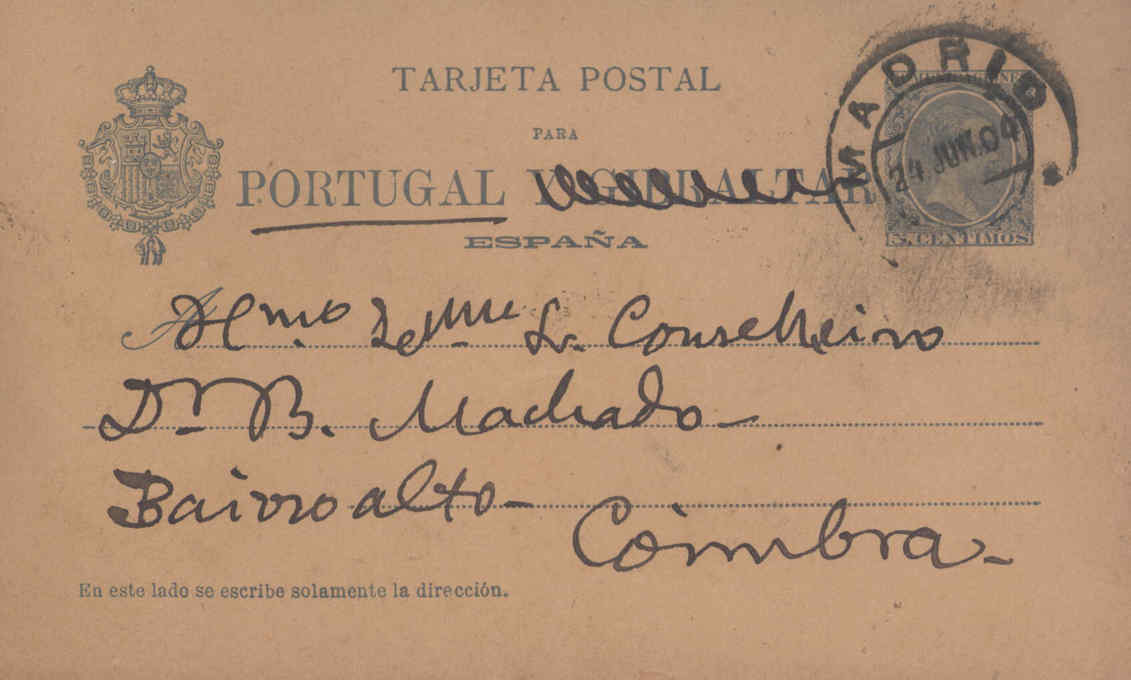 TARJETA POSTAL
PARA
PORTUGAL Y GIBRALTAR
ESPAÑA
MADRID
24 JUN. 04
5 CENTIMOS
Illmo. Exmo. Sr. Conselheiro
Dr. B. Machado
Bairro alto
Coimbra.
En este lado se escribe solamente la dirección.